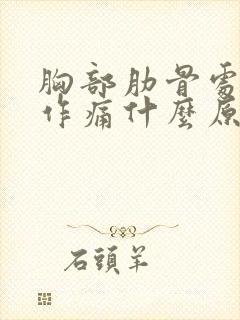 胸部肋骨處
作痛什麼原
石頭羊